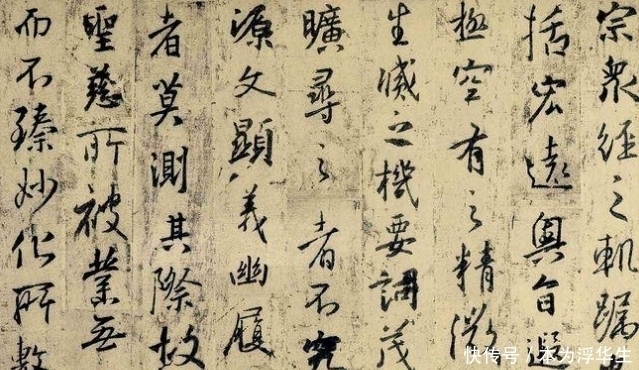 宗衆經之軌躅
括宏遠奧旨遐
極空有之精微
生滅之機要詞茂
曠尋之者不究
源文顯義幽履
者莫測其際故
聖慈所被業無
而不臻妙化所敷
快传号 / 本为浮华生